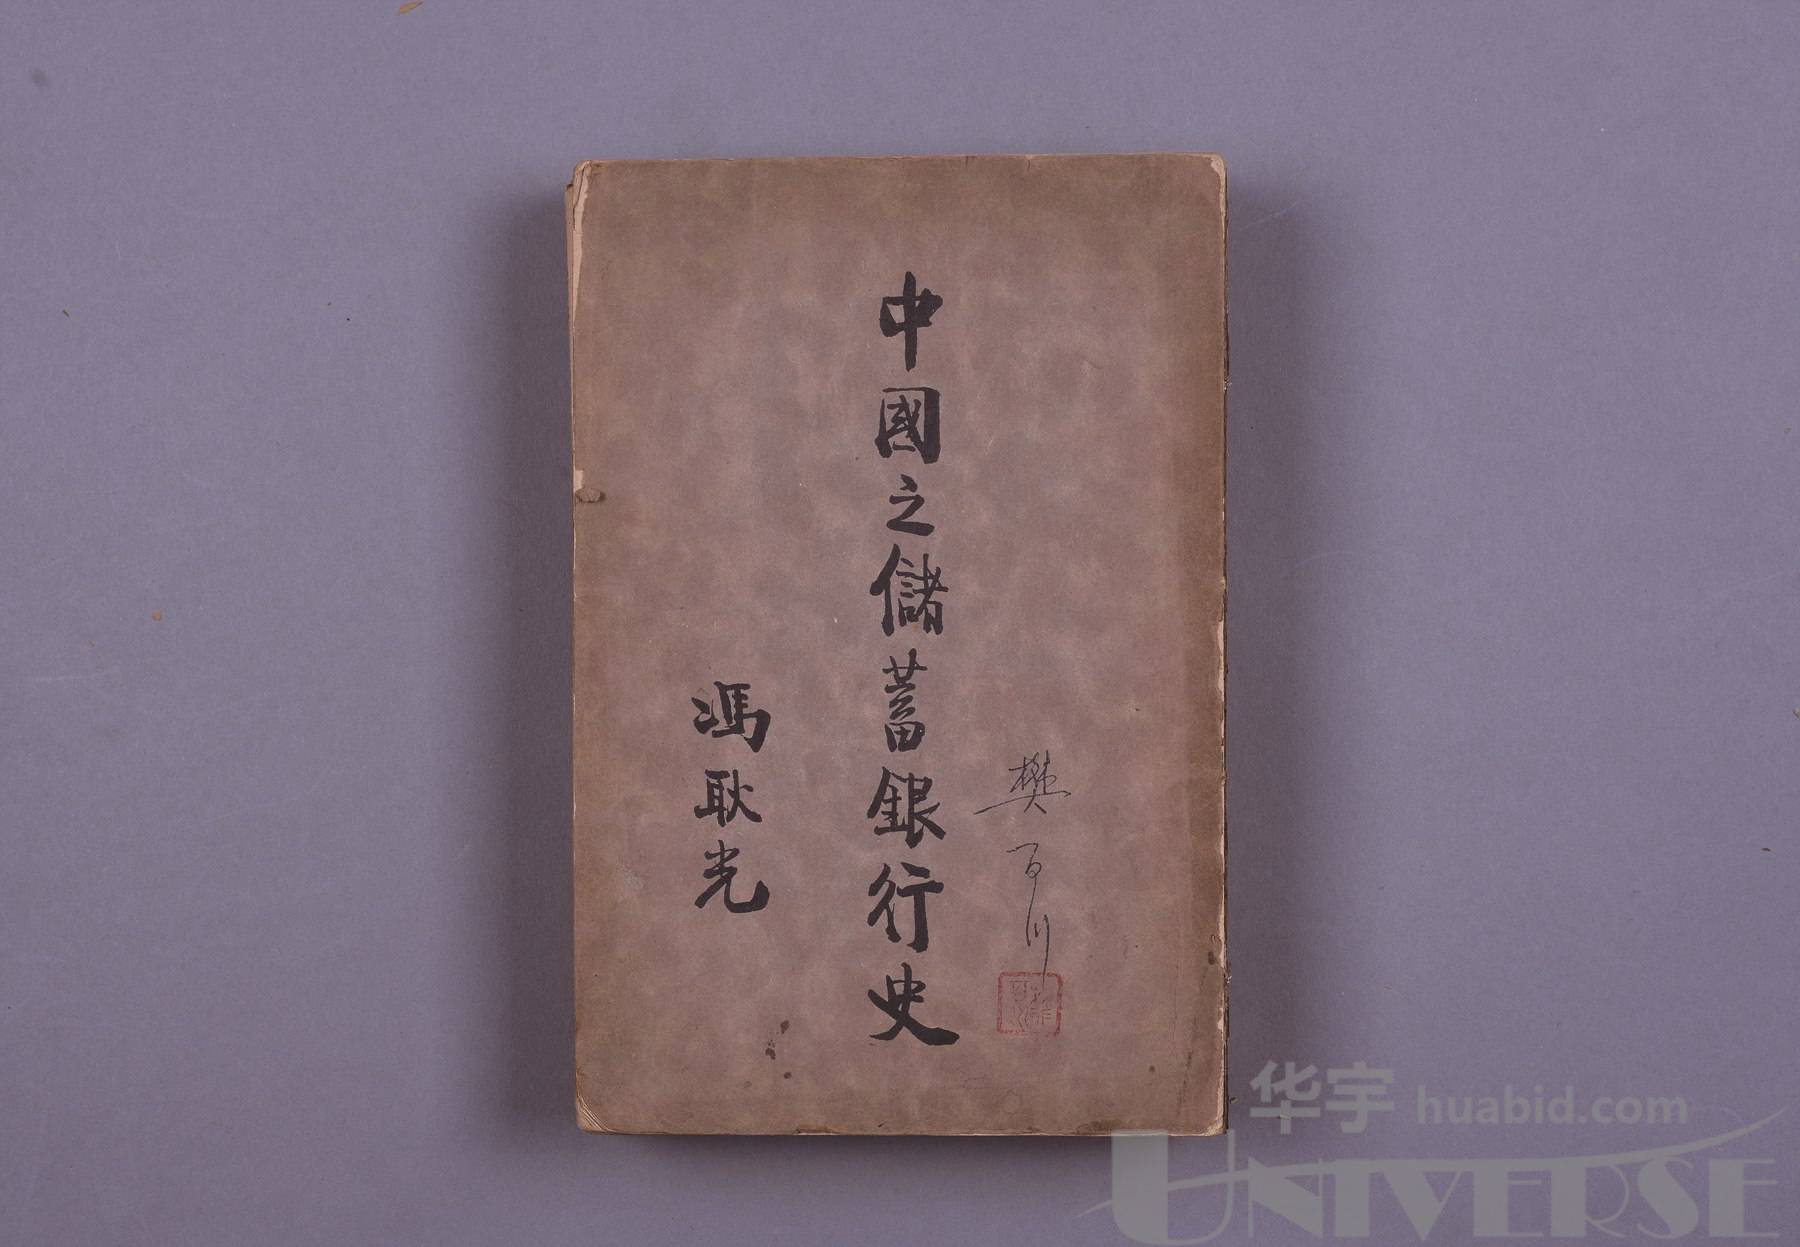 樊百川
中國之儲蓄銀行史
馮耿光
华宇 huabid.com
UNIVERSE